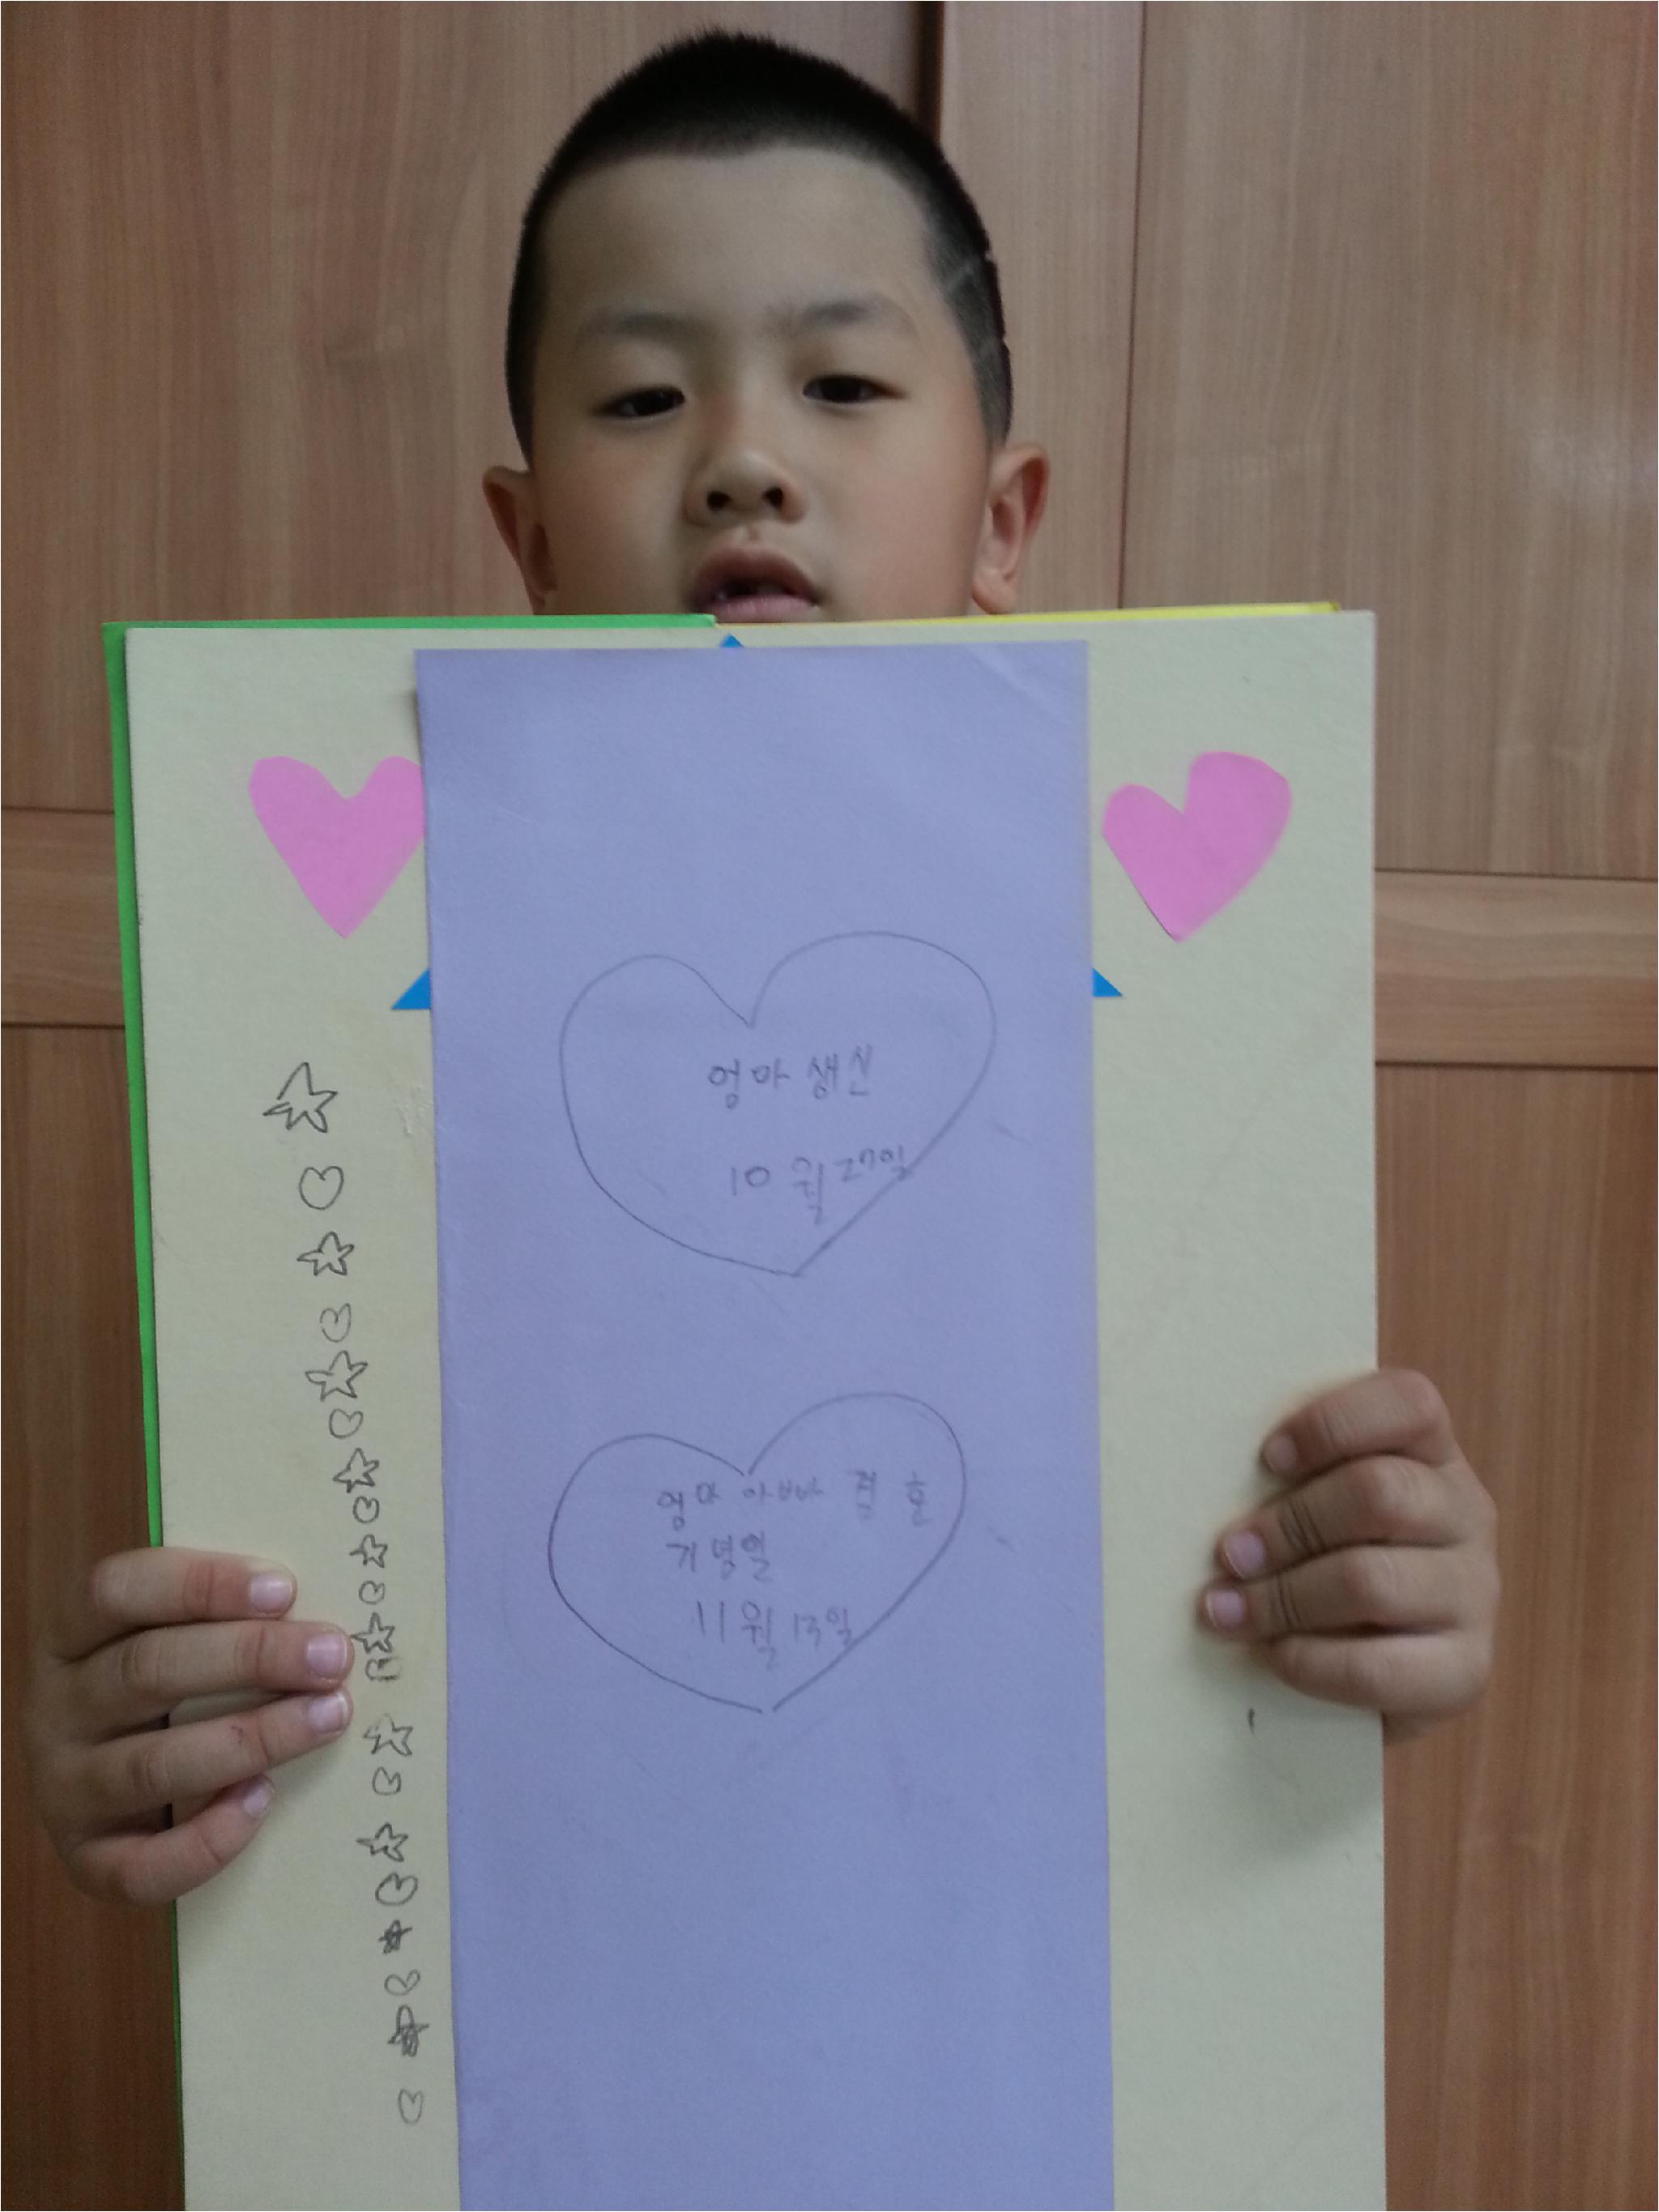 엄마 생신
10월 27일
엄마 아빠 결혼
기념일
11월 13일